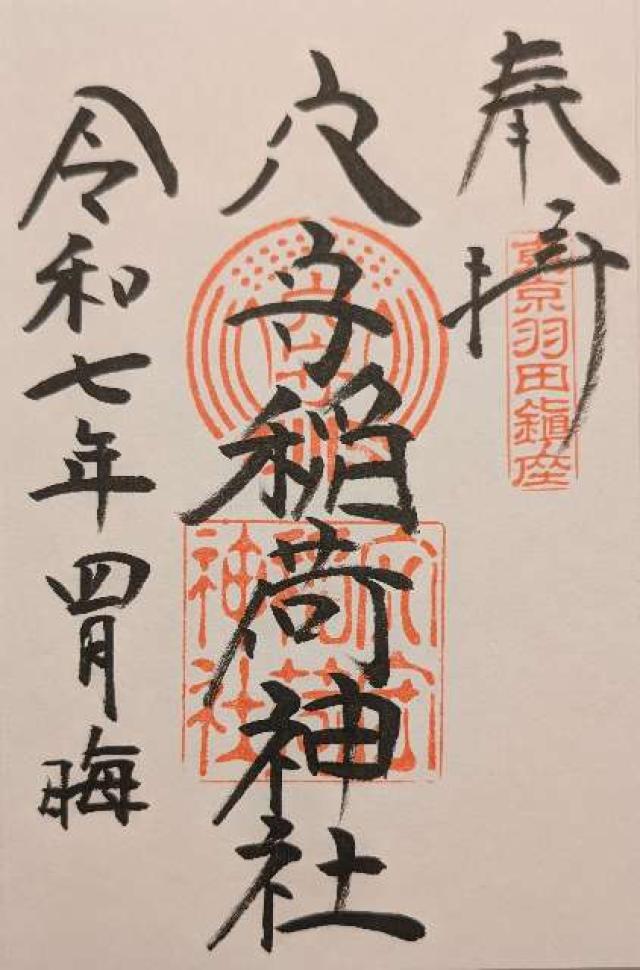 奉拝
東京羽田鎮座
穴守稲荷神社
穴守稲荷神社
令和七年四月晦